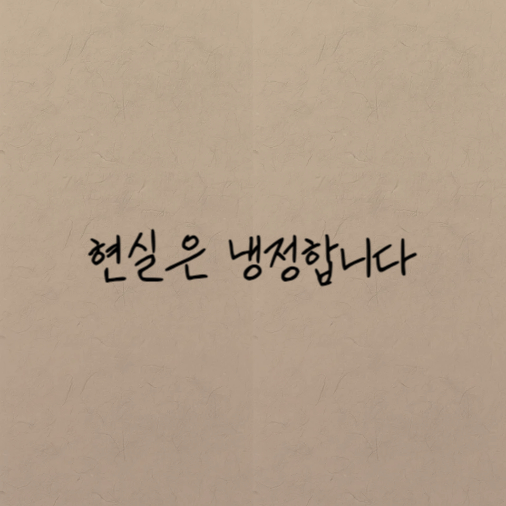 현실은 냉정합니다